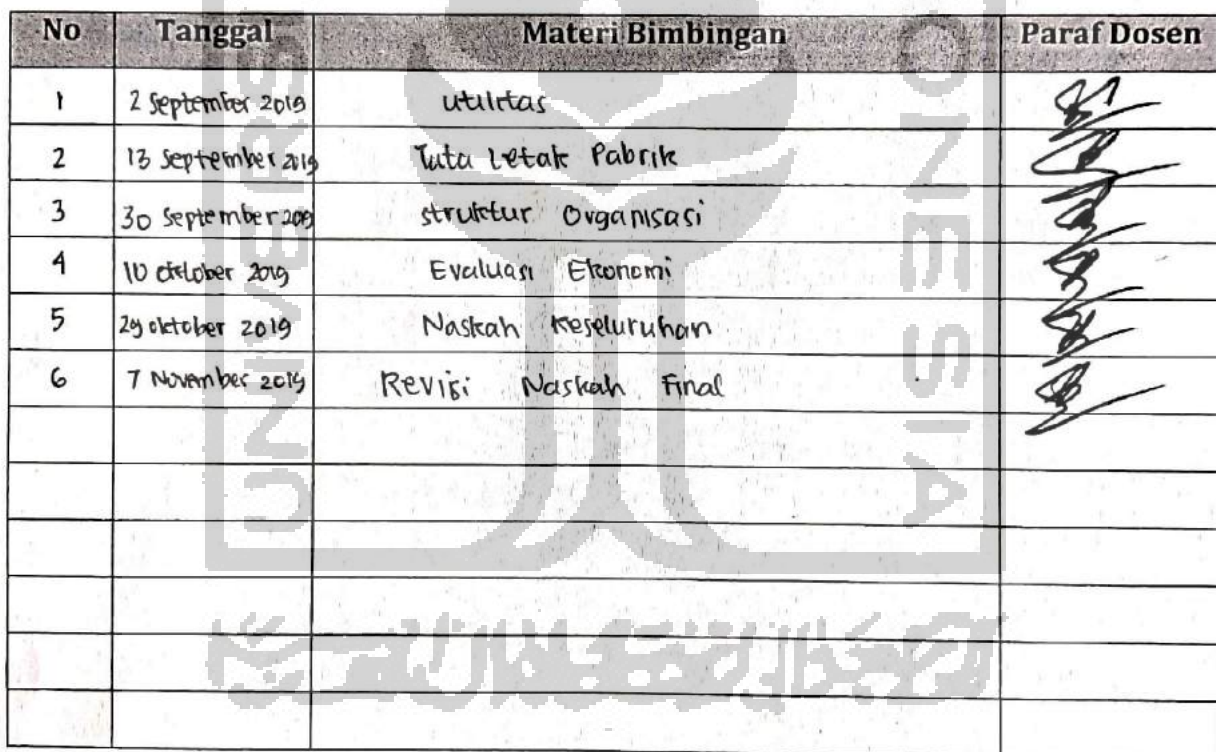 No Tanggal Materi Bimbingan Paraf Dosen
1 2 September 2019 utilitas
2 13 September 2019 Tata Letak Pabrik
3 30 September 2019 struktur Organisasi
4 10 oktober 2019 Evaluasi Ekonomi
5 29 oktober 2019 Naskah Keseluruhan
6 7 November 2019 Revisi Naskah Final